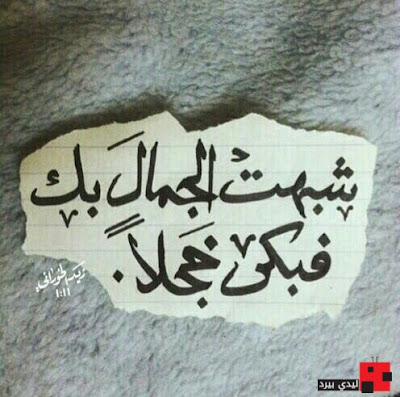 شبهت الجمالَ بك
فبكى خجلاً.
١:١١
ليدي بيرد